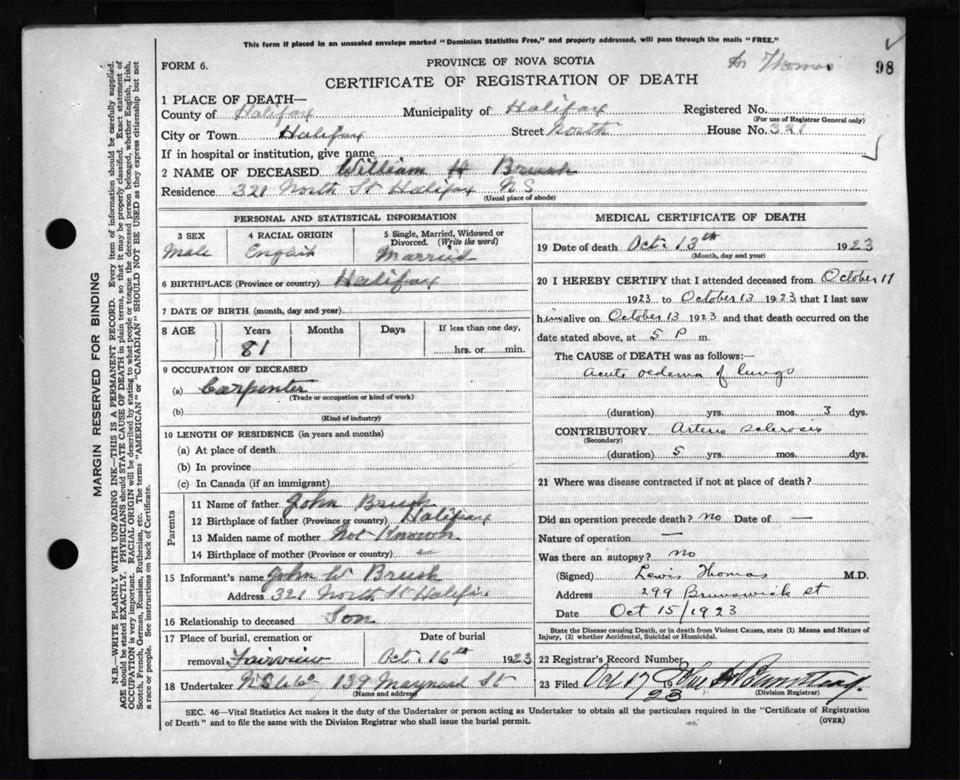 This form if placed in an unsealed envelope marked "Dominion Statistics Free," and properly addressed, will pass through the mails "FREE."
FORM 6.
PROVINCE OF NOVA SCOTIA
Dr Thomas
98
CERTIFICATE OF REGISTRATION OF DEATH
1 PLACE OF DEATH—
County of Halifax Municipality of Halifax Registered No.
(For use of Registrar General only)
City or Town Halifax Street North House No. 321
If in hospital or institution, give name
2 NAME OF DECEASED William H Brush
Residence 321 North St Halifax N S
(Usual place of abode)
PERSONAL AND STATISTICAL INFORMATION
3 SEX 4 RACIAL ORIGIN 5 Single, Married, Widowed or Divorced. (Write the word)
Male English Married
6 BIRTHPLACE (Province or country) Halifax
7 DATE OF BIRTH (month, day and year)
8 AGE Years Months Days If less than one day,
81 hrs. or min.
9 OCCUPATION OF DECEASED
(a) Carpenter
(Trade or occupation or kind of work)
(b)
(Kind of industry)
10 LENGTH OF RESIDENCE (in years and months)
(a) At place of death
(b) In province
(c) In Canada (if an immigrant)
Parents
11 Name of father John Brush
12 Birthplace of father (Province or country) Halifax
13 Maiden name of mother Not Known
14 Birthplace of mother (Province or country) "
15 Informant's name John W Brush
Address 321 North St Halifax
16 Relationship to deceased Son
17 Place of burial, cremation or Date of burial
removal Fairview Oct. 16th 1923
18 Undertaker 139 Maynard St
(Name and address)
MEDICAL CERTIFICATE OF DEATH
19 Date of death Oct. 13th 1923
(Month, day and year)
20 I HEREBY CERTIFY that I attended deceased from October 11
1923 to October 13 1923 that I last saw
him alive on October 13 1923 and that death occurred on the
date stated above, at 5 P m.
The CAUSE OF DEATH was as follows:—
Acute oedema of lungs
(duration) yrs. mos. 3 dys.
CONTRIBUTORY Arterio sclerosis
(Secondary)
(duration) 5 yrs. mos. dys.
21 Where was disease contracted if not at place of death?
Did an operation precede death? no Date of —
Nature of operation —
Was there an autopsy? no
(Signed) Lewis Thomas M.D.
Address 299 Brunswick st
Date Oct 15/1923
State the Disease causing Death, or in death from Violent Causes, state (1) Means and Nature of
Injury, (2) whether Accidental, Suicidal or Homicidal.
22 Registrar's Record Number
23 Filed Oct 17 1923
(Division Registrar)
SEC. 46—Vital Statistics Act makes it the duty of the Undertaker or person acting as Undertaker to obtain all the particulars required in the "Certificate of Registration
of Death" and to file the same with the Division Registrar who shall issue the burial permit.
(OVER)
MARGIN RESERVED FOR BINDING
N.B.—WRITE PLAINLY WITH UNFADING INK—THIS IS A PERMANENT RECORD. Every item of information should be carefully supplied.
AGE should be stated EXACTLY. PHYSICIANS should STATE CAUSE OF DEATH in plain terms, so that it may be properly classified. Exact statement of
OCCUPATION is very important. RACIAL ORIGIN will be described by stating to what people or tongue the deceased person belonged, whether English, Irish,
Scotch, French, German, Russian, Ruthenian, etc. The terms "AMERICAN" or "CANADIAN" SHOULD NOT BE USED as they express citizenship but not
a race or people. See instructions on back of Certificate.